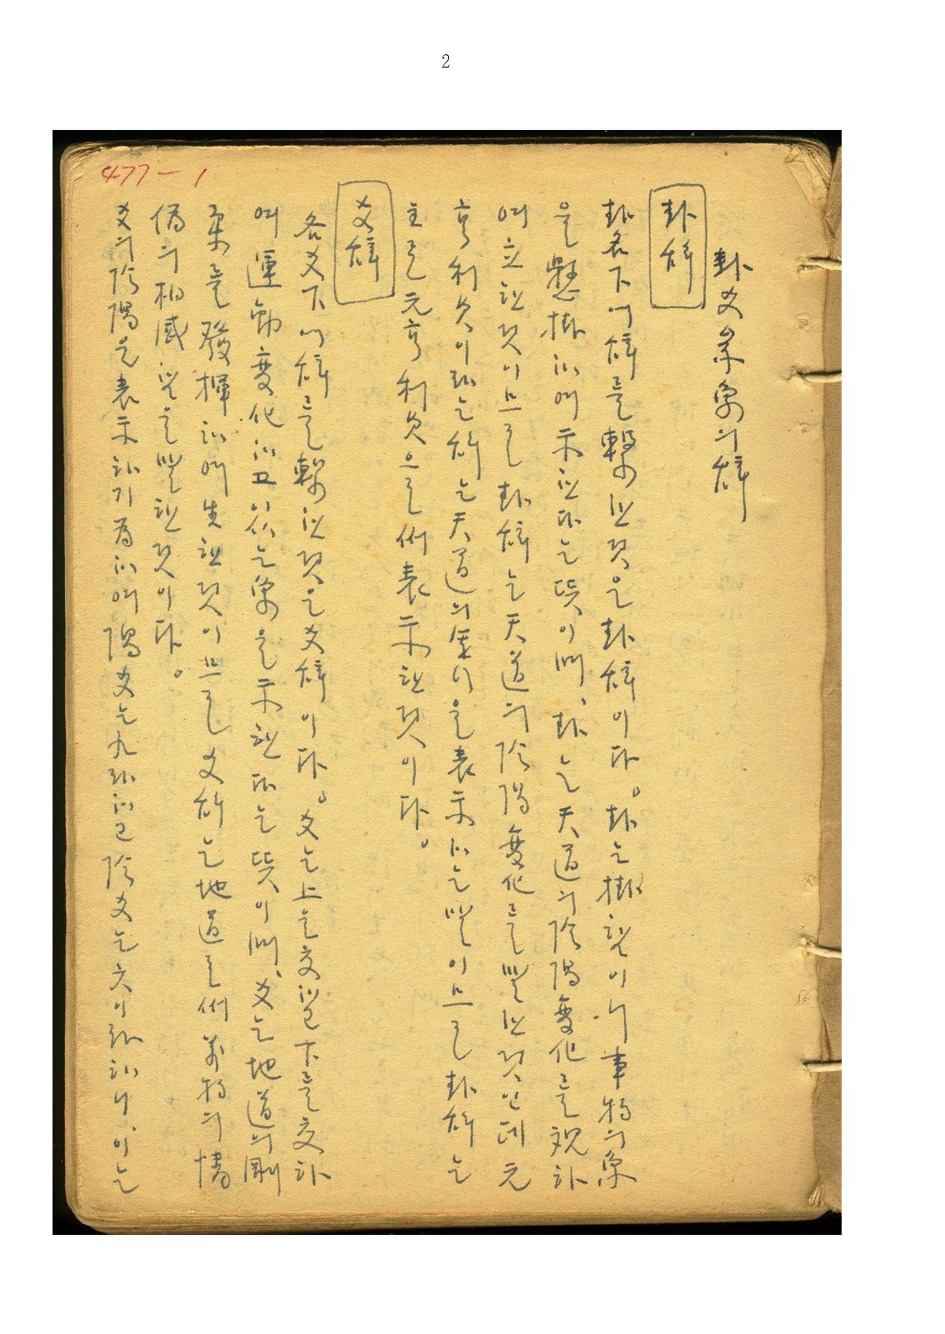 2
477-1
卦爻彖象의辭
卦辭
卦名下에辭를繫한것은卦辭이다。卦는掛함이니事物의象
을懸掛하여示한다는뜻이며、卦는天道의陰陽變化를觀하
여立한것이므로卦辭는天道의陰陽變化를말한것인데元
亨利貞이라는辭는天道의 을表示하는말이므로卦辭는
主로元亨利貞으로써表示한것이다。
爻辭
各爻下에辭를繫한것은爻辭이다。爻는上을交하고下를交하
며運動變化하고있는象을示한다는뜻이며、爻는地道의剛
柔를發揮하여生한것이므로爻辭는地道로써萬物의情
僞의相感함을말한것이다。
爻의陰陽을表示하기爲하여陽爻는九라하고陰爻는六이라하니、이는